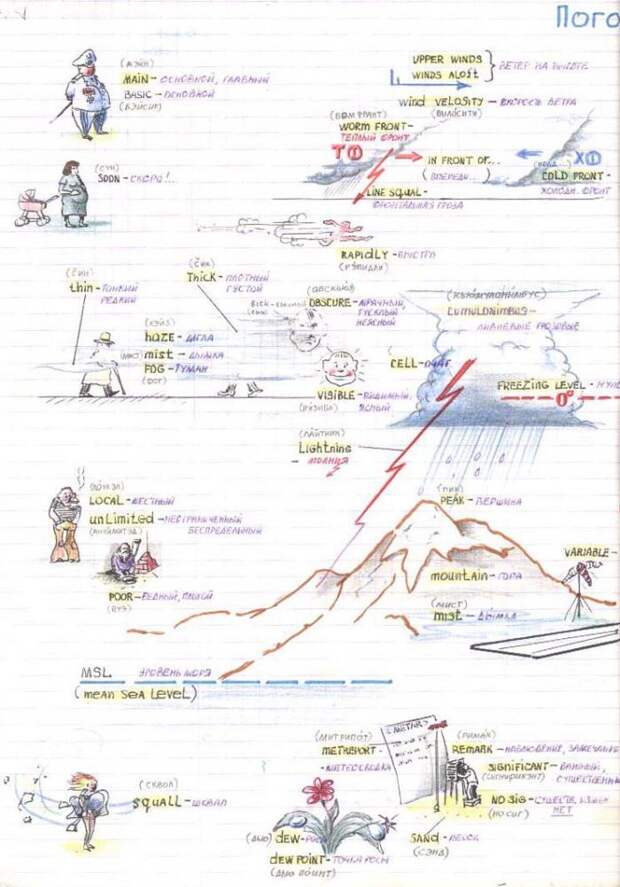 Пого
(мэйн)
MAIN - ОСНОВНОЙ, ГЛАВНЫЙ
BASIC - ОСНОВНОЙ
(БЭЙСИК)
UPPER WINDS
WINDS ALOFT
ВЕТЕР НА ВЫСОТЕ
WIND VELOSITY - СКОРОСТЬ ВЕТРА
(ВИЛОСИТИ)
(ВОМ ФРАНТ)
WORM FRONT-
ТЕПЛЫЙ ФРОНТ
T①
IN FRONT OF...
(ВПЕРЕДИ...)
Х①
COLD FRONT-
ХОЛОДН. ФРОНТ
LINE SQUAL-
ФРОНТАЛЬНАЯ ГРОЗА
(СУН)
SOON - СКОРО!..
RAPIDLY - БЫСТРО
(РЭПИДЛИ)
(СИН)
thin - ТОНКИЙ
РЕДКИЙ
(СИК)
Thick - ПЛОТНЫЙ
ГУСТОЙ
(ОБСКЬЮА)
OBSCURE - МРАЧНЫЙ,
ТУСКЛЫЙ
НЕЯСНЫЙ
(КЬЮМУЛОНИМБУС)
CUMULONIMBUS -
ЛИВНЕВЫЕ ГРОЗОВЫЕ
(ХЭЙЗ)
haze - МГЛА
(МИСТ) mist - ДЫМКА
FOG - ТУМАН
(ФОГ)
VISIBLE - ВИДИМЫЙ,
ЯСНЫЙ
(ВИЗИБЛ)
CELL - ОЧАГ
FREEZING LEVEL - НУЛЕ
0°
(ЛАЙТНИН)
Lightning
- МОЛНИЯ
(ЛОУКЭЛ)
LOCAL - МЕСТНЫЙ
unLimited - НЕОГРАНИЧЕННЫЙ
БЕСПРЕДЕЛЬНЫЙ
(АНЛИМИТЭД)
POOR - БЕДНЫЙ, ПЛОХОЙ
(ПУЭ)
(ПИК)
PEAK - ВЕРШИНА
mountain - ГОРА
(МИСТ)
mist - ДЫМКА
VARIABLE -
MSL УРОВЕНЬ МОРЯ
(mean SEA LEVEL)
(СКВОЛ)
squall - ШКВАЛ
(МИТРИПОТ)
METREPORT -
- МЕТЕОСВОДКА
METAR
(РИМАК)
REMARK - НАБЛЮДЕНИЕ, ЗАМЕЧАНИЕ
SIGNIFICANT - ВАЖНЫЙ,
(СИГНИФИКЭНТ) СУЩЕСТВЕННЫ
NO SIG - СУЩЕСТВ. ИЗМЕН
(НОСИГ) НЕТ
SAND - ПЕСОК
(СЭНД)
(ДЬЮ) dew - РОСА
dew POINT - ТОЧКА РОСЫ
(ДЬЮ ПОИНТ)